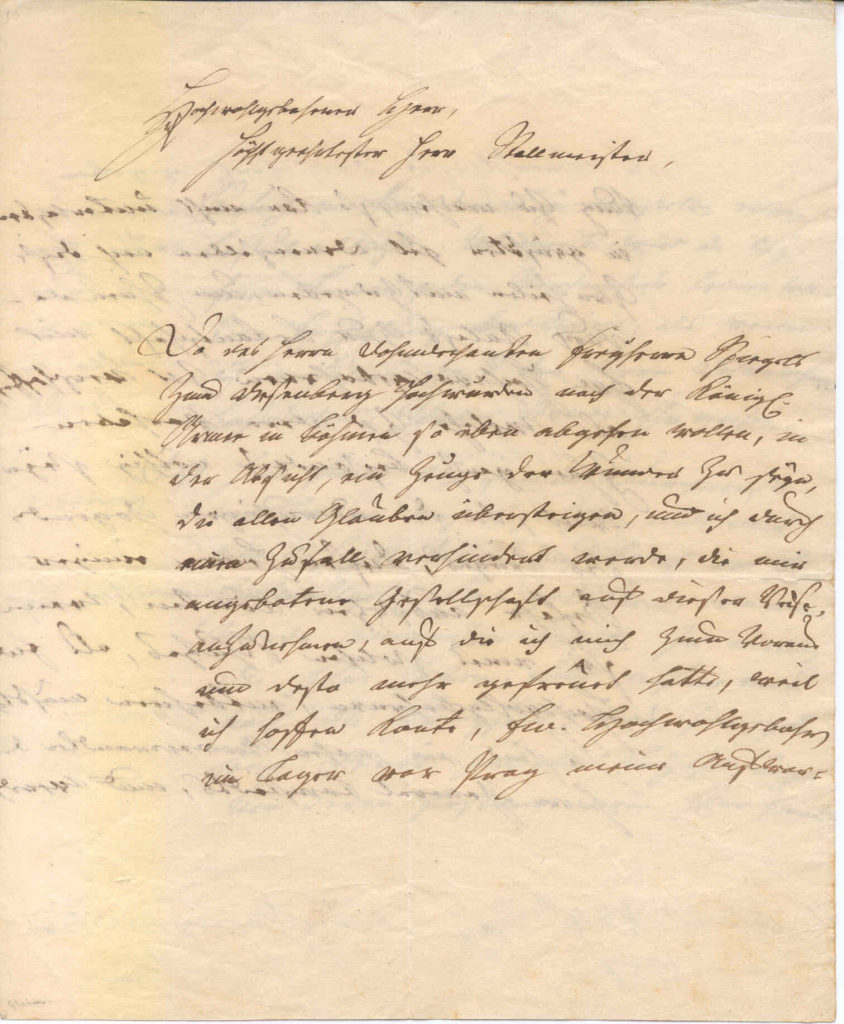 Hochwohlgebohrner Herr,
Höchstgeehrtester Herr Stallmeister,
Da des Herrn Domdechanten Freyherrn Spiegels
zum Desenberg Hochwürden nach der Königl.
Armee in Böhmen so eben abgehen wollen, in
der Absicht, ein Zeuge der Wunder zu seyn,
die allen Glauben übersteigen, und ich durch
einen Zufall verhindert werde, die mir
angebotene Gesellschaft auf dieser Reise,
anzunehmen, auf die ich mich zum Voraus
um desto mehr gefreuet hatte, weil
ich hoffen konte, Ew. Hochwohlgebohrn
im Lager vor Prag meine Aufwar=